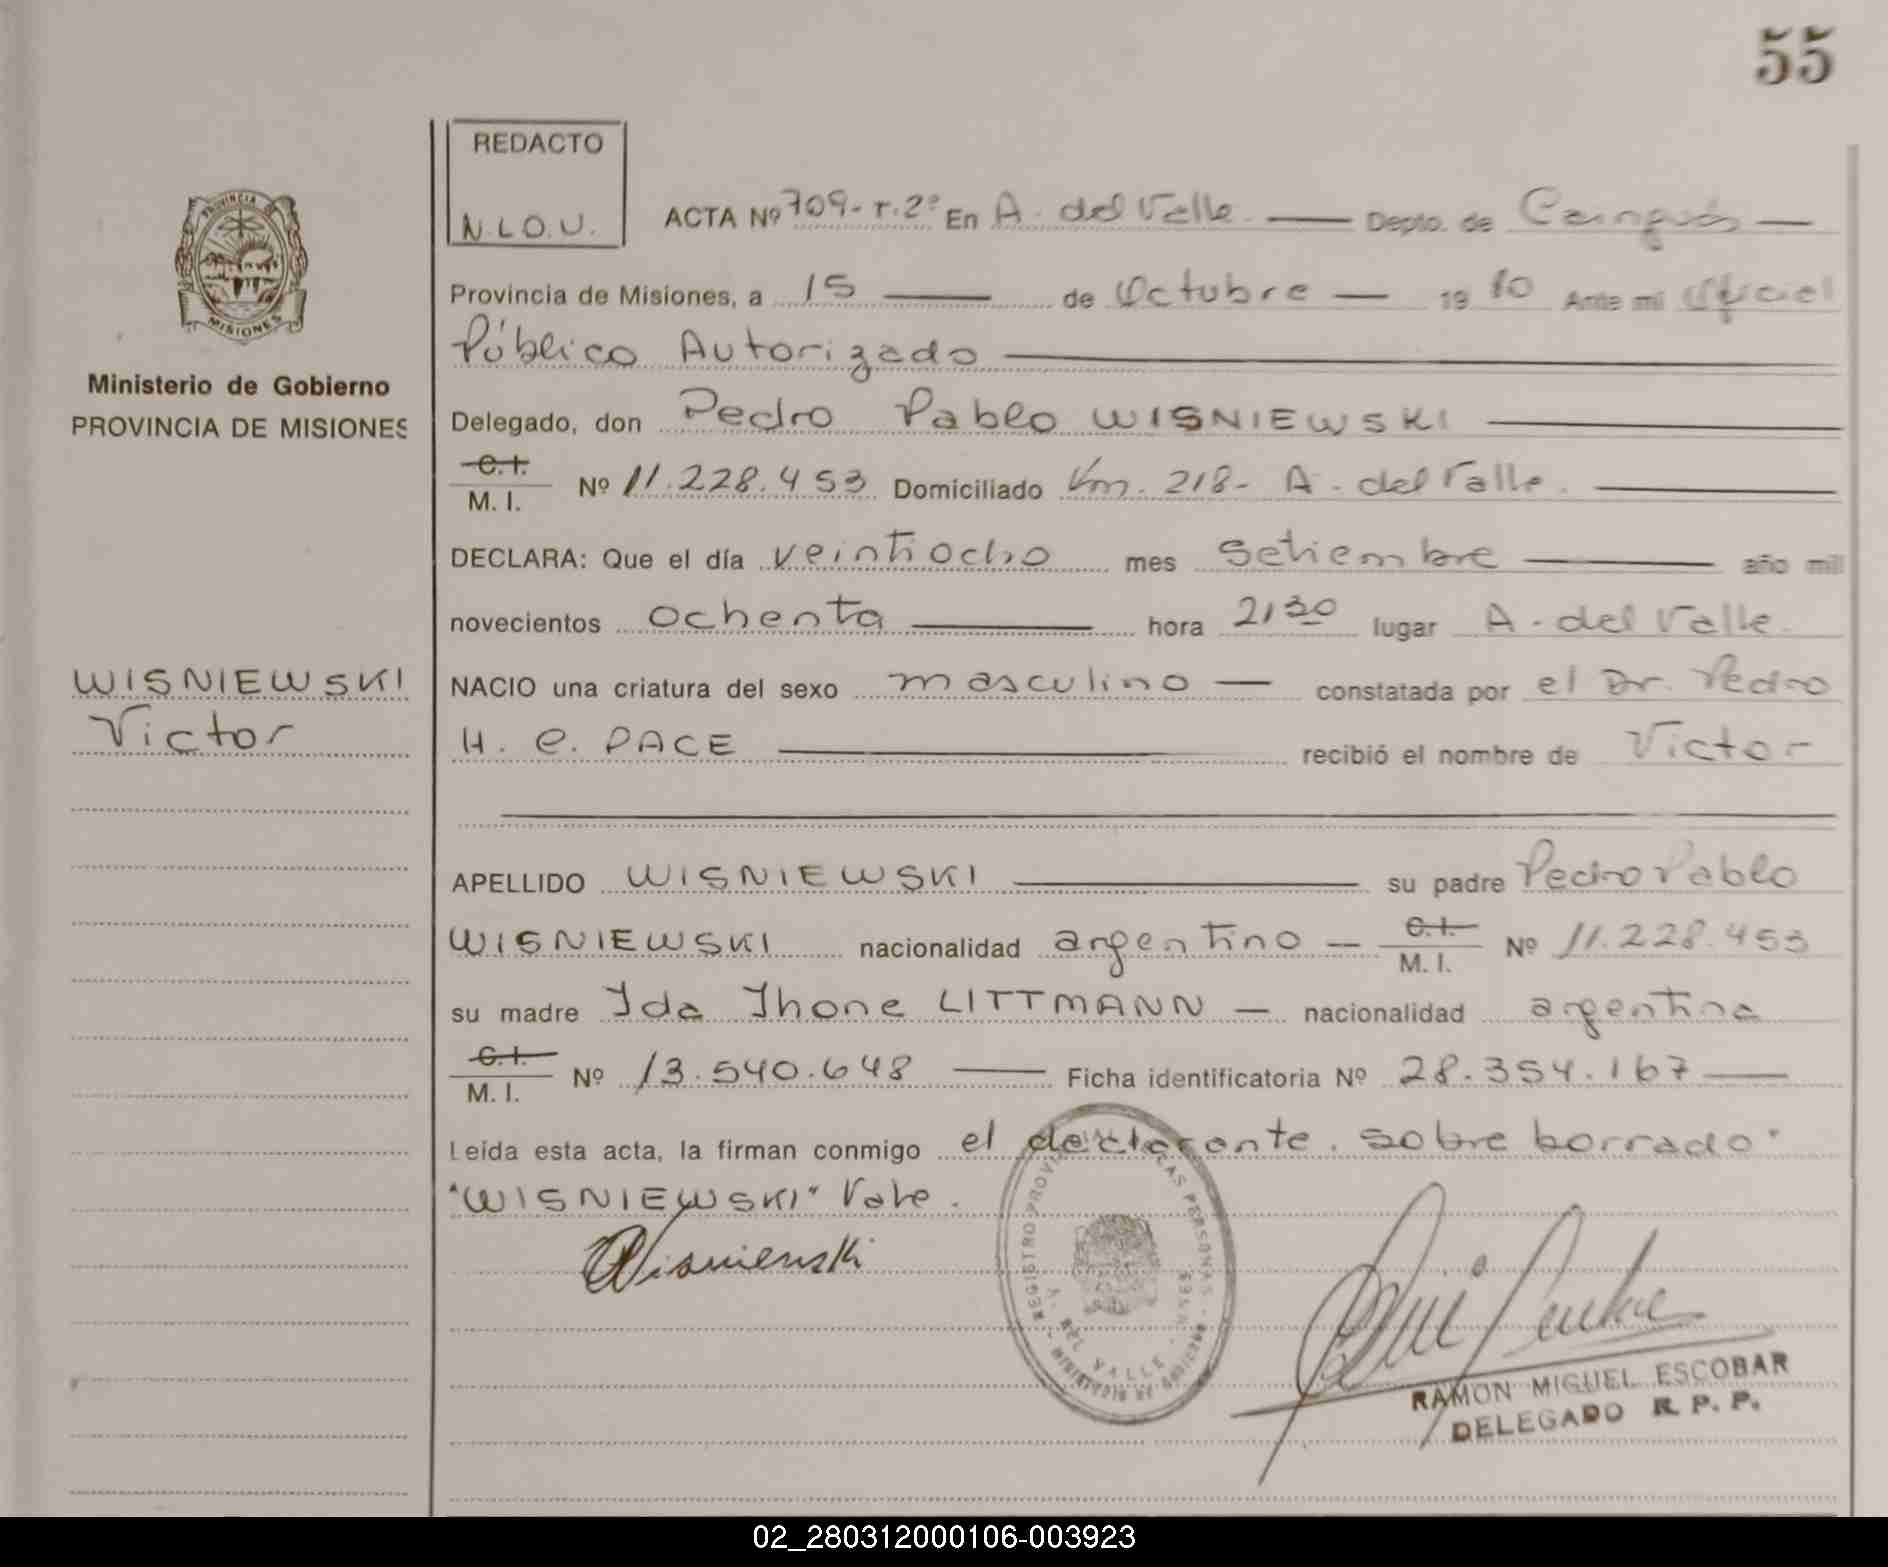 55
REDACTO
N.L.O.U.
ACTA Nº 709-T.2º En A. del Valle. — Depto. de Cainguás —
Provincia de Misiones, a 15 — de Octubre — 19 80 Ante mí Oficial
Público Autorizado —
Delegado, don Pedro Pablo WISNIEWSKI —
C.I. M. I. Nº 11.228.453 Domiciliado Km. 218- A. del Valle. —
DECLARA: Que el día veintiocho mes Setiembre — año mil
novecientos ochenta — hora 21 30 lugar A. del Valle.
NACIO una criatura del sexo masculino — constatada por el Dr. Pedro
H. C. PACE — recibió el nombre de Victor
APELLIDO WISNIEWSKI — su padre Pedro Pablo
WISNIEWSKI nacionalidad argentino — C.I. M. I. Nº 11.228.453
su madre Ida Jhone LITTMANN — nacionalidad argentina
C.I. M. I. Nº 13.540.648 — Ficha identificatoria Nº 28.354.167 —
Leída esta acta, la firman conmigo el declarante. Sobre borrado.
"WISNIEWSKI" Vale.
Wisnienski
RAMON MIGUEL ESCOBAR
DELEGADO R. P. P.
PROVINCIA DE
MISIONES
Ministerio de Gobierno
PROVINCIA DE MISIONES
WISNIEWSKI
Victor
REGISTRO PROVINCIAL LAS PERSONAS
A. DEL VALLE
02_280312000106-003923